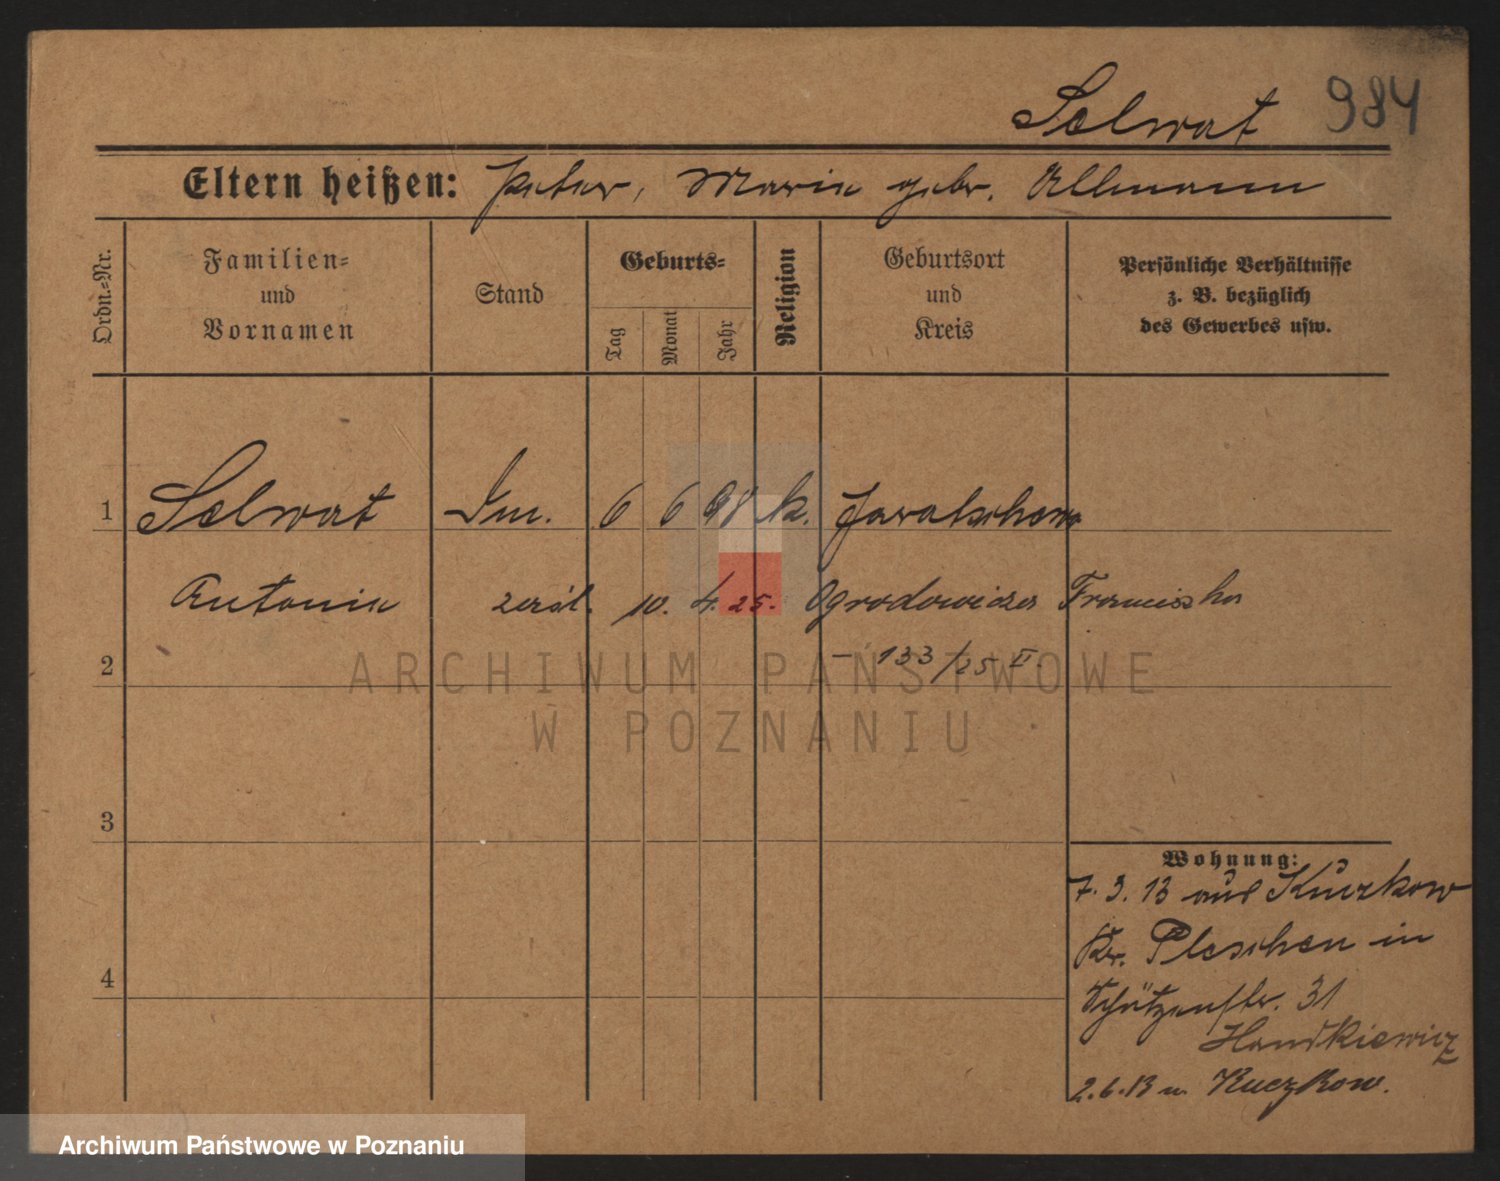 Selwat 984
Eltern heißen: Peter, Maria gebr. Ullmann
Ordn.-Nr.
Familien-
und
Vornamen
Stand
Geburts-
Tag
Monat
Jahr
Religion
Geburtsort
und
Kreis
Persönliche Verhältnisse
z. B. bezüglich
des Gewerbes usw.
1 Selwat 6 6 98 k.
Antonia 10. 4. 25. Franciszka
2 – 133/25 II.
3
4
Wohnung:
7. 3. 13 aus Kuczkow
Kr. Pleschen in
Schützenstr. 31
Handkiewicz
2.6.13 n. Kuczkow.
ARCHIWUM PAŃSTWOWE
W POZNANIU
Archiwum Państwowe w Poznaniu